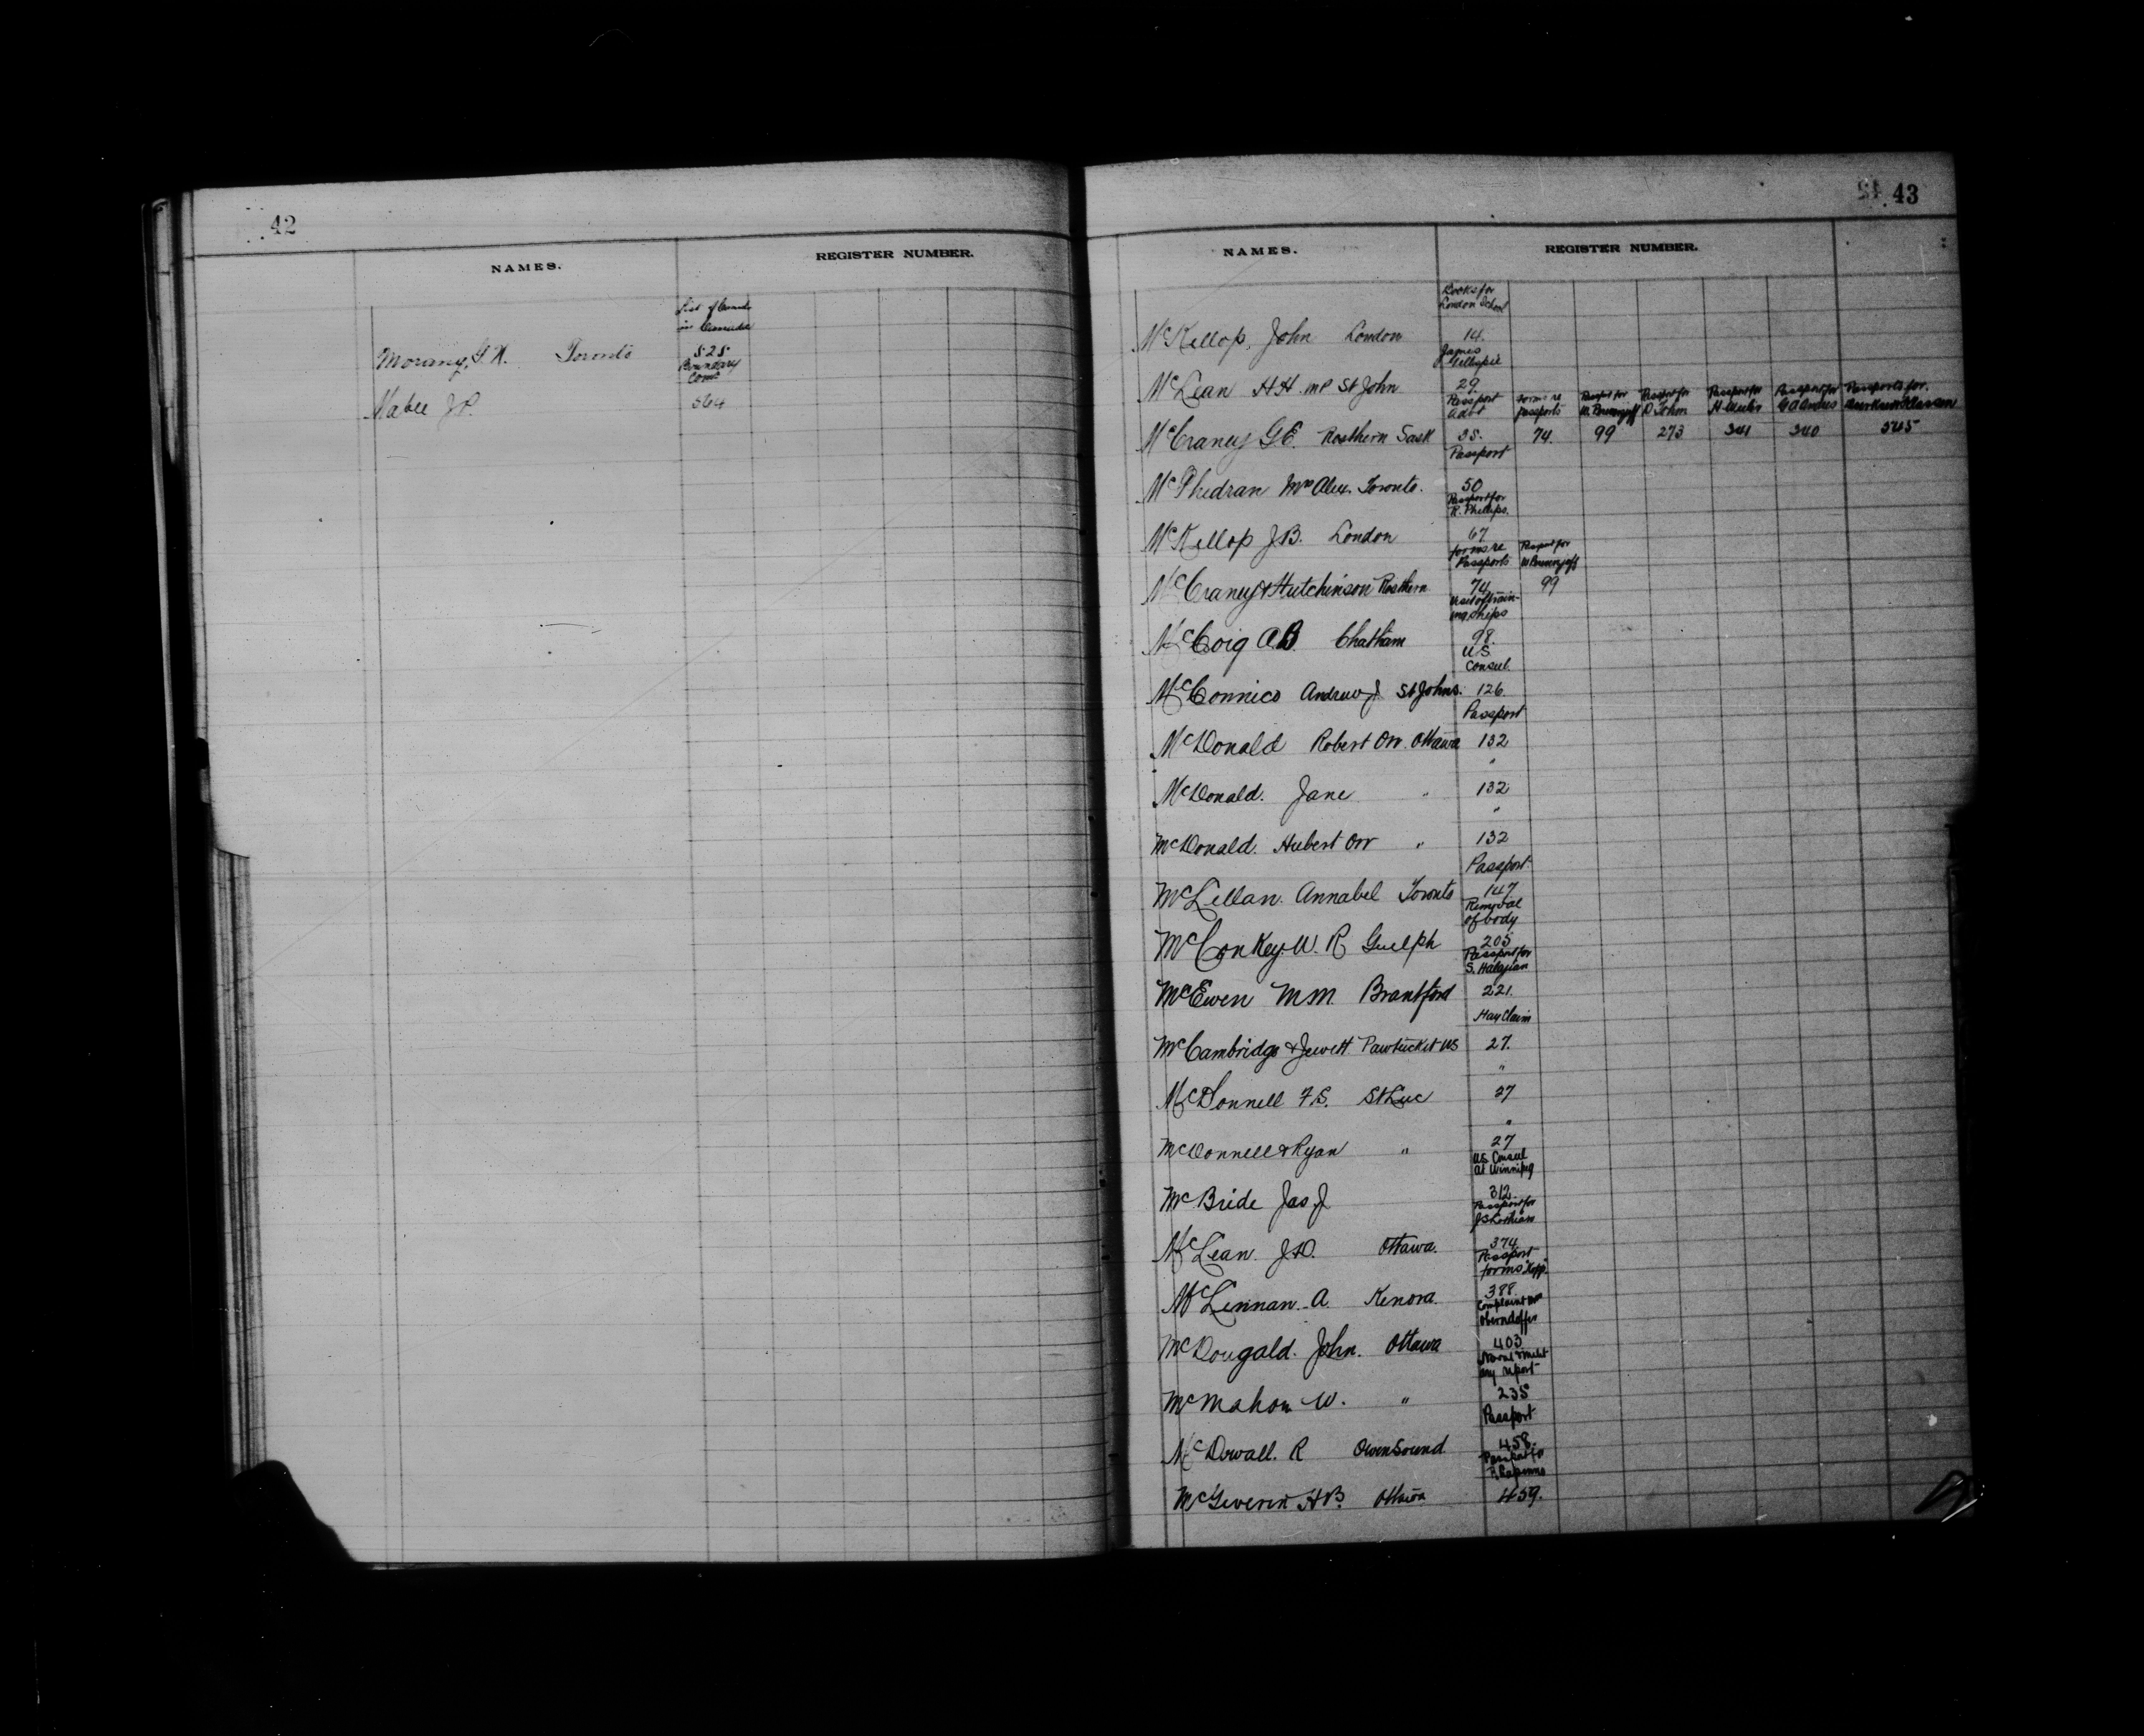 42
NAMES. REGISTER NUMBER.
List of
in Canada
Morang, G. N. Toronto 525
Boundary
Comn
Mabee J.P. 564
43
NAMES. REGISTER NUMBER.
Books for
London School
McKellop, John London 14.
James
Gillespie
McLean H H. MP St John 29.
Passport forms re Passport for Passport for Passport for Passport for Passports for
passports
McCraney G.E. Rosthern Sask 35. 74. 99 273 341 340 545
Passport
McPhedran Mrs Alex. Toronto. 50
Passport for
R. Phillips.
McKellop J.B. London 67
forms re Passport for
Passports
McCraney & Hutchinson Rosthern 74 99
Visit of train-
ing ships
McCoig A.B. Chatham 98.
U.S.
Consul.
McConnico Andrew J. St Johns. 126.
Passport
McDonald Robert Orr. Ottawa 132
"
McDonald. Jane " 132
"
McDonald. Hubert Orr " 132
Passport
McLellan. Annabel Toronto 147
Removal
of body
McConkey. W. R Guelph 205
Passport for
S. Halajian
McEwen M M. Brantford 221.
Hay Claim
McCambridge & Jewett. Pawtucket US 27.
"
McDonnell F.S. St Luc 27
"
McDonnell & Ryan " 27
U.S. Consul
at Winnipeg
McBride Jas J 312.
Passport for
McLean. J.D. Ottawa. 374
Passport
forms
McLennan. A. Kenora. 388.
Complaint
McDougald. John. Ottawa 403
Naval & milit
ary report
McMahon W. " 235
Passport
McDowall. R Owen Sound 458.
Passport for
McGiverin H B. Ottawa 459.